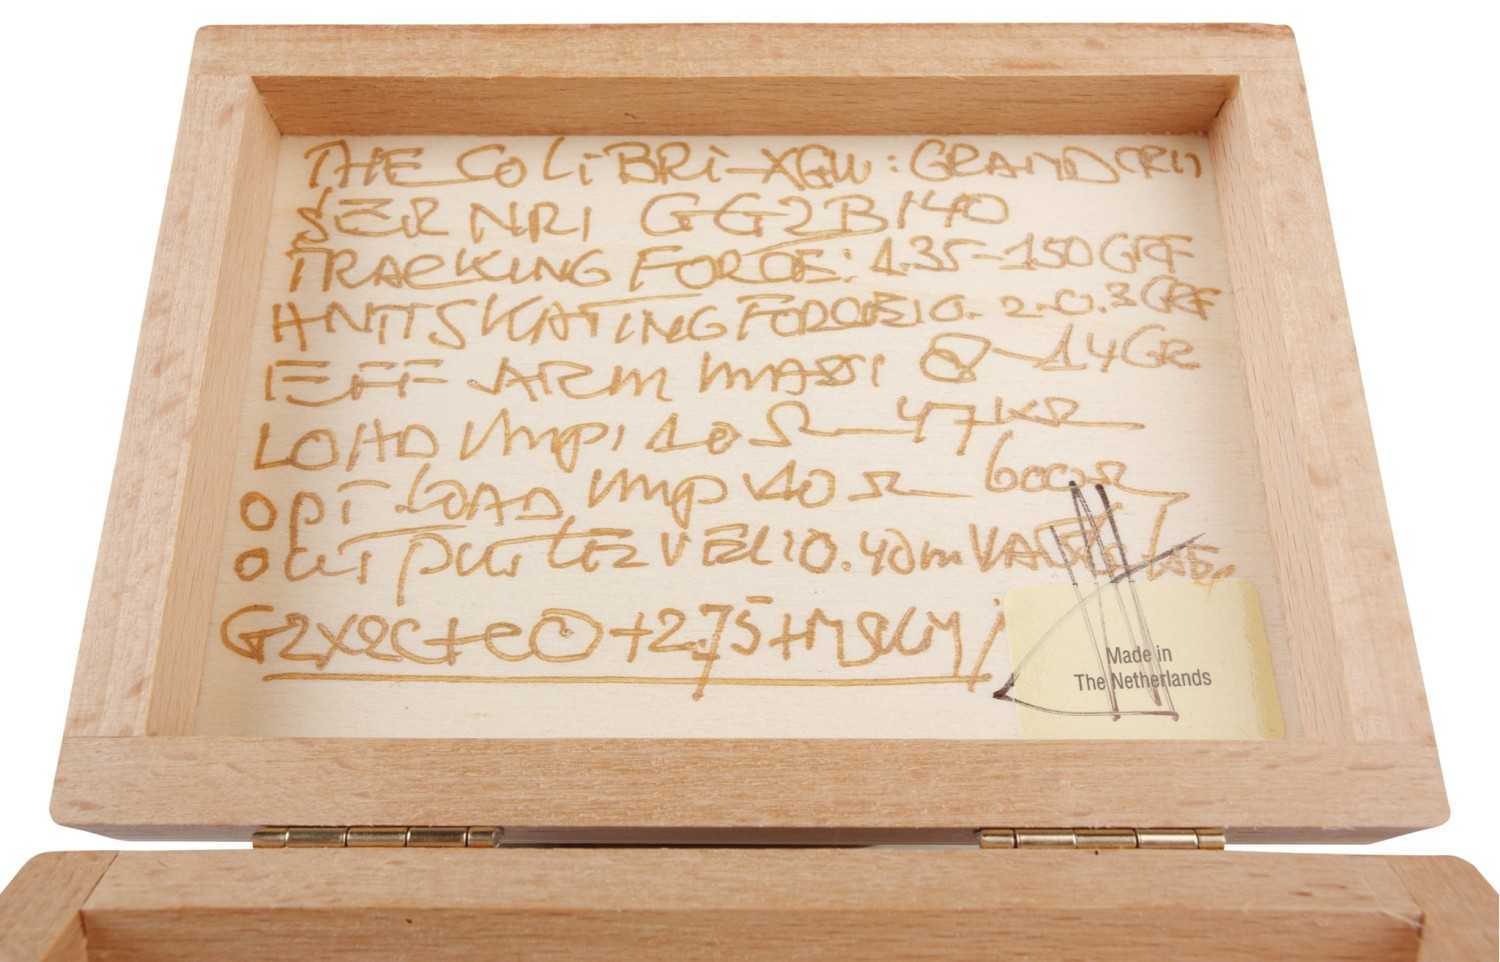 THE COLiBRi-XGW: GRAND CRU
SER NRI GG2B140
TRACKING FORCE: 1.35-1.50 GRF
ANTISKATING FORCE: 0.2-0.3 GRF
EFF ARM MASS: 8-14 GR
LOAD IMP: 10Ω-47KΩ
OPT LOAD IMP 40Ω-600Ω
OUTPUT LEVEL: 0.40mV
Made in
The Netherlands